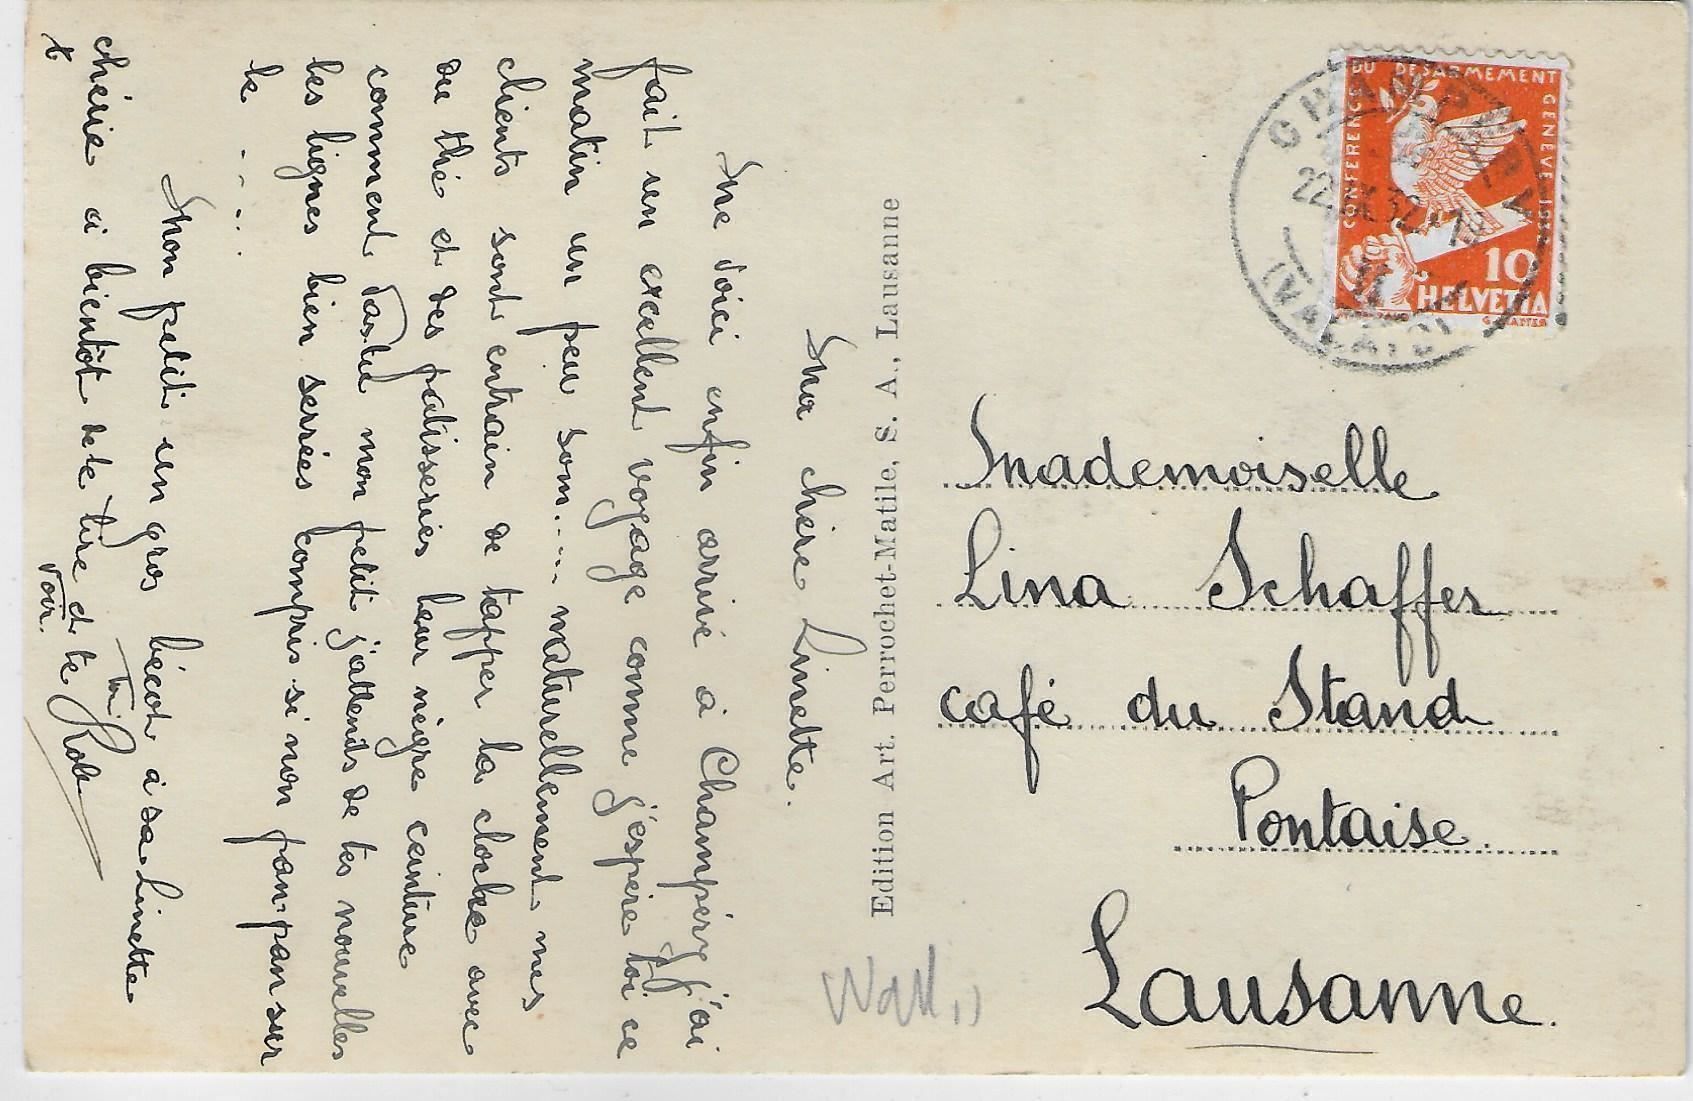 Ma chère Linette.
Me voici enfin arrivé à Champéry j'ai
fait un excellent voyage comme j'espère toi ce
matin un peu som.... naturellement mes
clients sont entrain de tapper la cloche avec
du thé et des patisseries leur nègre ceinture
comment vas-tu mon petit j'attends de tes nouvelles
les lignes bien serrées compris si non pan-pan sur
le .....
Mon petit un gros bécot à sa Linette
chérie à bientôt de te lire et te
voir.
Ton Rob
Edition Art. Perrochet-Matile, S. A., Lausanne
CONFERENCE DU DESARMEMENT GENEVE 1932
10
HELVETIA
CHAMPERY
22.IX.32.-19
(VALAIS)
Mademoiselle
Lina Schaffer
café du Stand
Pontaise.
Lausanne.